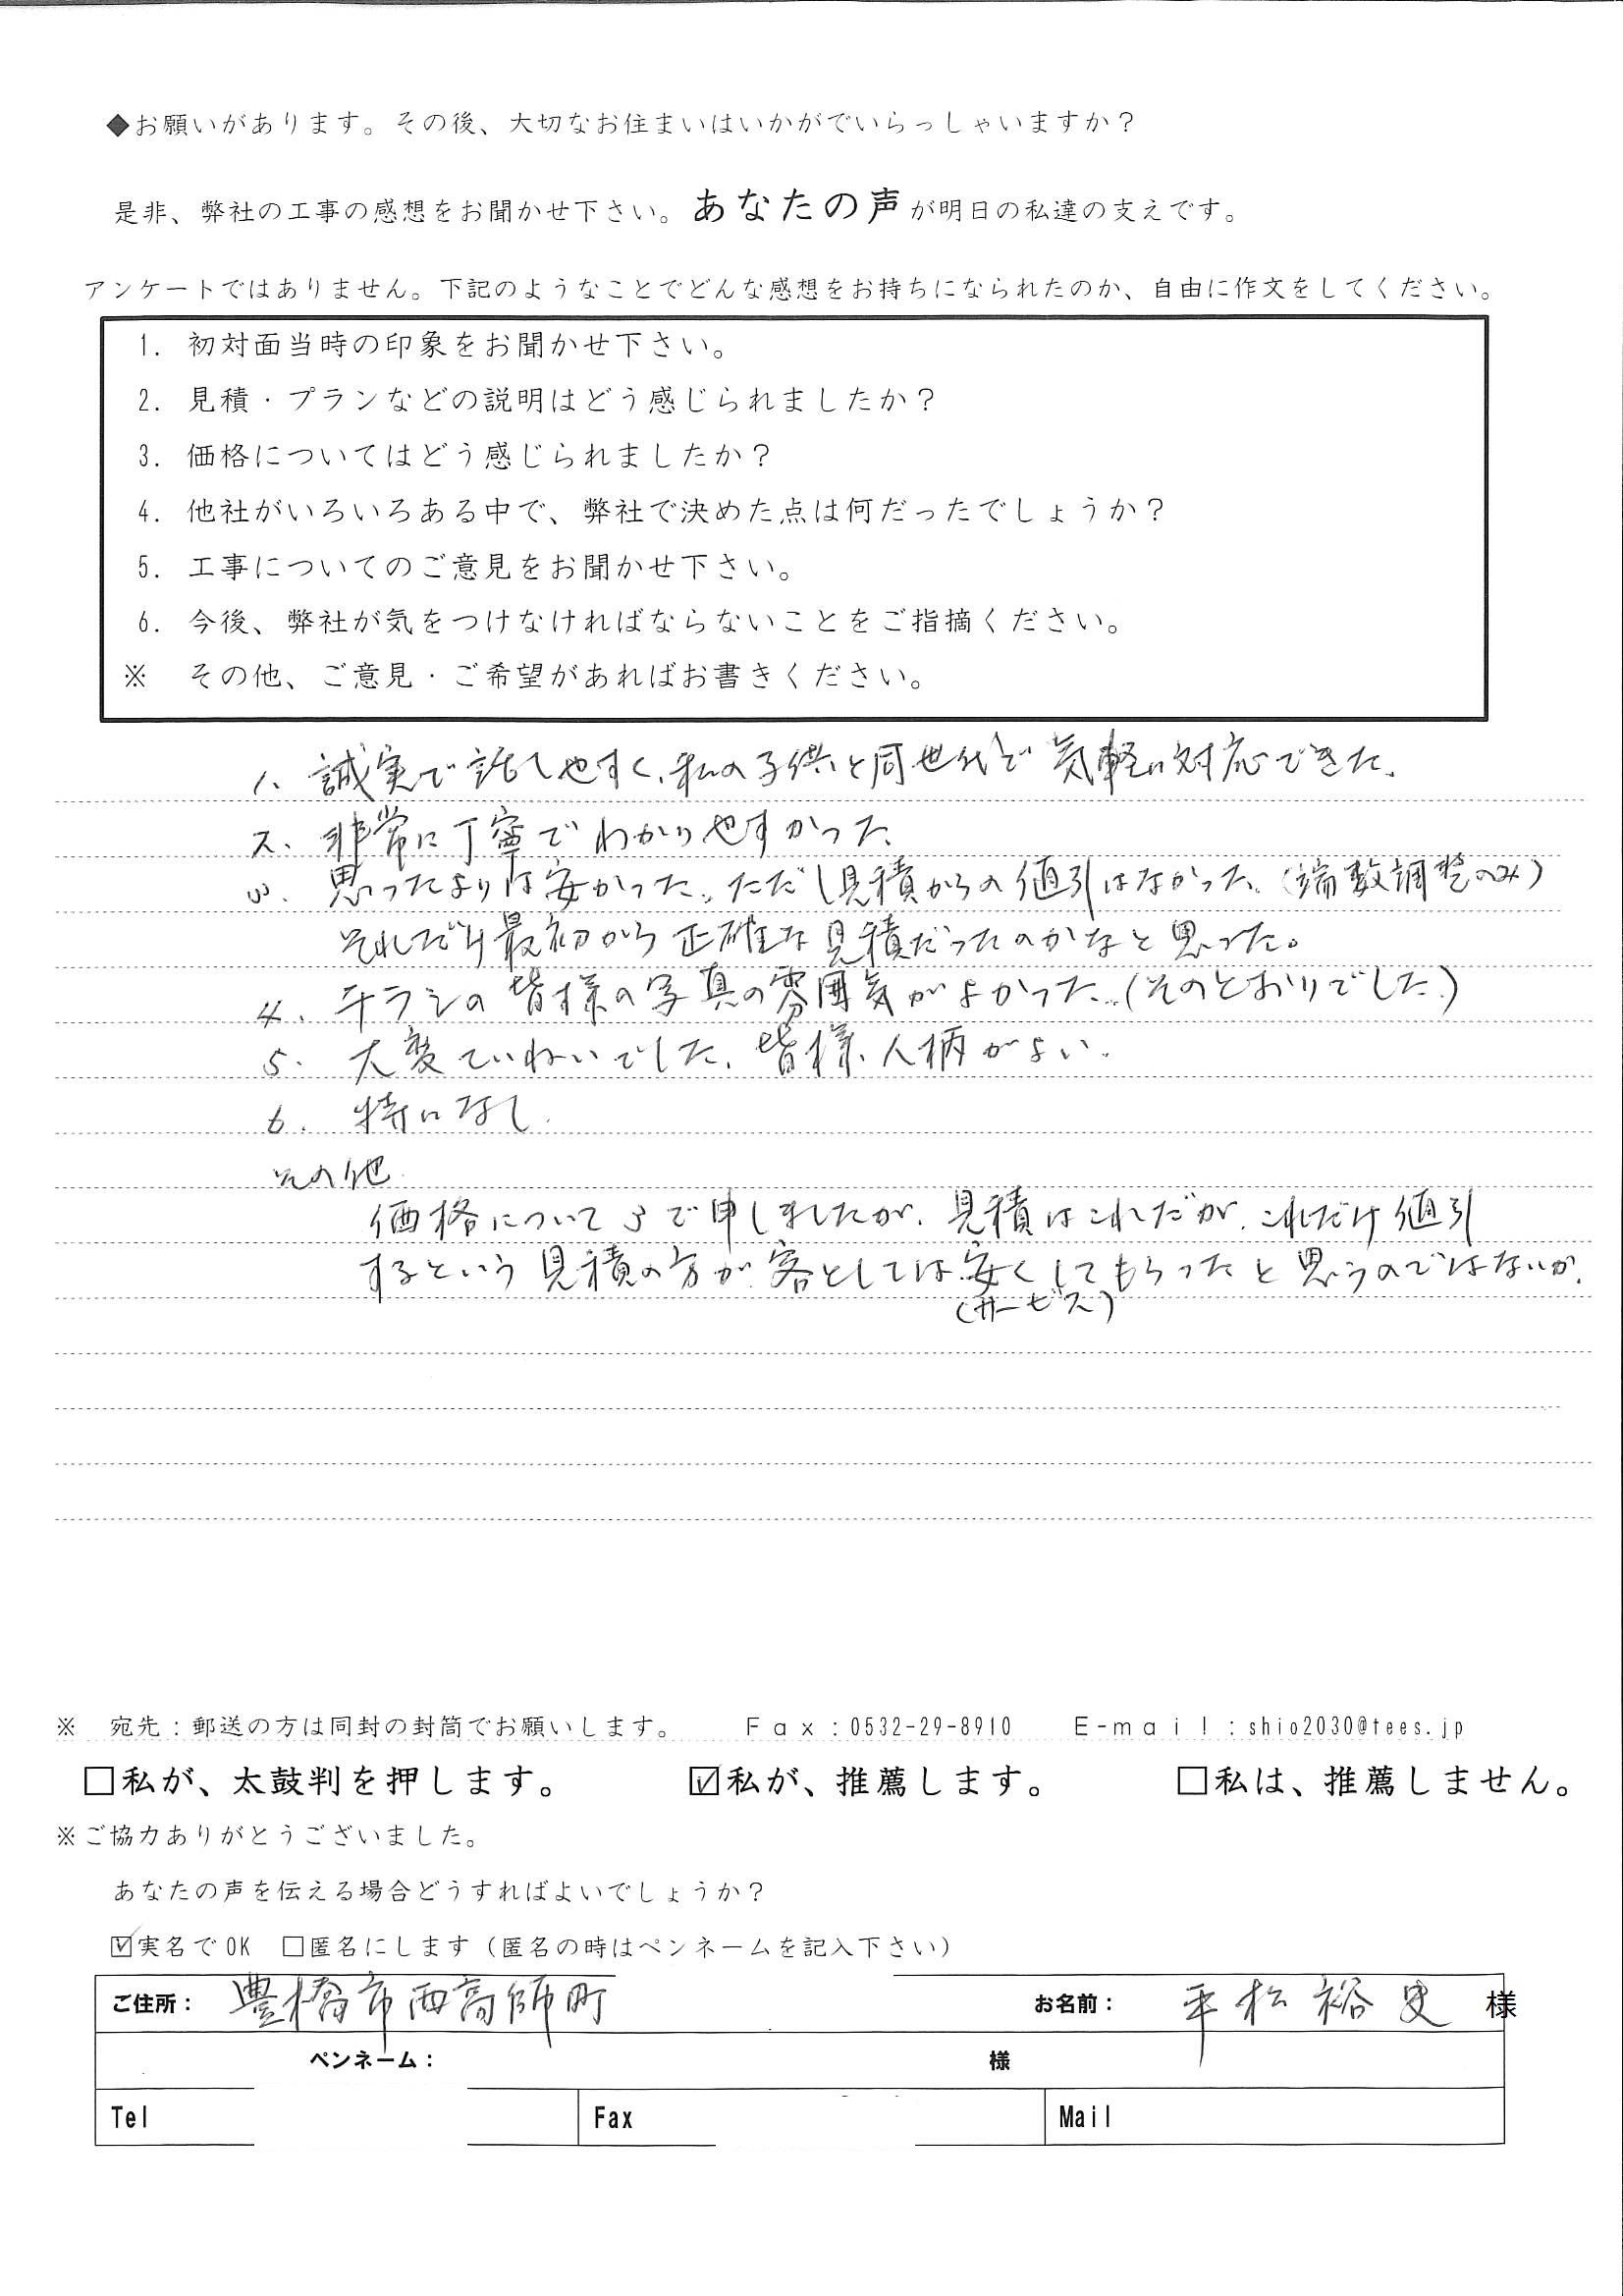 ◆お願いがあります。その後、大切なお住まいはいかがでいらっしゃいますか？
是非、弊社の工事の感想をお聞かせ下さい。あなたの声が明日の私達の支えです。
アンケートではありません。下記のようなことでどんな感想をお持ちになられたのか、自由に作文をしてください。
1. 初対面当時の印象をお聞かせ下さい。
2. 見積・プランなどの説明はどう感じられましたか？
3. 価格についてはどう感じられましたか？
4. 他社がいろいろある中で、弊社で決めた点は何だったでしょうか？
5. 工事についてのご意見をお聞かせ下さい。
6. 今後、弊社が気をつけなければならないことをご指摘ください。
※ その他、ご意見・ご希望があればお書きください。
1、誠実で話しやすく、私の子供と同世代で気軽に対応できた。
2、非常に丁寧でわかりやすかった。
3. 思ったよりは安かった。ただし見積からの値引はなかった。（端数調整のみ）
それだけ最初から正確な見積だったのかなと思った。
4. チラシの皆様の写真の雰囲気がよかった。（そのとおりでした。）
5. 大変ていねいでした。皆様、人柄がよい。
6. 特になし
その他
価格について3で申しましたが、見積はこれだが、これだけ値引
するという見積の方が客としては安くしてもらったと思うのではないか。
（サービス）
※ 宛先：郵送の方は同封の封筒でお願いします。 Fax：0532-29-8910 E-mail：shio2030@tees.jp
□私が、太鼓判を押します。 ☑私が、推薦します。 □私は、推薦しません。
※ご協力ありがとうございました。
あなたの声を伝える場合どうすればよいでしょうか？
☑実名でOK □匿名にします（匿名の時はペンネームを記入下さい）
ご住所： 豊橋市西高師町 お名前： 平松裕史 様
ペンネーム： 様
Tel Fax Mail